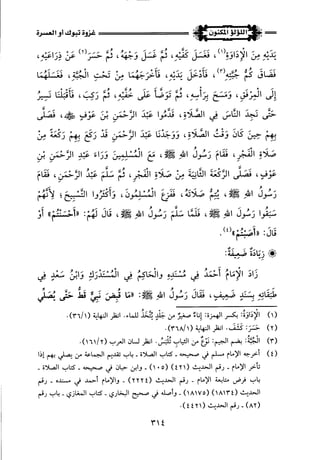 اللؤلؤ المكنون
غزوة تبوك أو العسرة
يَدَيْهِ مِنَ الْإِدَاوَةِ(١)، فَغَسَلَ كَفَّيْهِ، ثُمَّ غَسَلَ وَجْهَهُ، ثُمَّ حَسَرَ(٢) عَنْ ذِرَاعَيْهِ،
فَضَاقَ كُمُّ جُبَّتِهِ(٣)، فَأَدْخَلَ يَدَيْهِ، فَأَخْرَجَهُمَا مِنْ تَحْتِ الْجُبَّةِ، فَغَسَلَهُمَا
إِلَى الْمِرْفَقِ، وَمَسَحَ بِرَأْسِهِ، ثُمَّ تَوَضَّأَ عَلَى خُفَّيْهِ، ثُمَّ رَكِبَ، فَأَقْبَلْنَا نَسِيرُ
حَتَّى نَجِدَ النَّاسَ فِي الصَّلَاةِ، قَدْ قَدَّمُوا عَبْدَ الرَّحْمَنِ بْنَ عَوْفٍ ، فَصَلَّى
بِهِمْ حِينَ كَانَ وَقْتُ الصَّلَاةِ، وَوَجَدْنَا عَبْدَ الرَّحْمَنِ قَدْ رَكَعَ بِهِمْ رَكْعَةً مِنْ
صَلَاةِ الْفَجْرِ، فَقَامَ رَسُولُ اللهِ ﷺ، مَعَ الْمُسْلِمِينَ وَرَاءَ عَبْدِ الرَّحْمَنِ بْنِ
عَوْفٍ، فَصَلَّى الرَّكْعَةَ الثَّانِيَةَ مِنْ صَلَاةِ الْفَجْرِ، ثُمَّ سَلَّمَ عَبْدُ الرَّحْمَنِ، فَقَامَ
رَسُولُ اللهِ ﷺ، يُتِمُّ صَلَاتَهُ، فَفَزِعَ الْمُسْلِمُونَ، وَأَكْثَرُوا التَّسْبِيحَ؛ لِأَنَّهُمْ
سَبَقُوا رَسُولَ اللهِ ﷺ، فَلَمَّا سَلَّمَ رَسُولُ اللهِ ﷺ، قَالَ لَهُمْ: «أَحْسَنْتُمْ» أَوْ
قَالَ: «أَصَبْتُمْ»(٤).
زِيَادَةٌ ضَعِيفَةٌ:
زَادَ الْإِمَامُ أَحْمَدُ فِي مُسْنَدِهِ وَالْحَاكِمُ فِي الْمُسْتَدْرَكِ وَابْنُ سَعْدٍ فِي
طَبَقَاتِهِ بِسَنَدٍ ضَعِيفٍ، فَقَالَ رَسُولُ اللهِ ﷺ: «مَا قُبِضَ نَبِيٌّ قَطُّ حَتَّى يُصَلِّيَ
(١) الْإِدَاوَةُ: بكسر الهمزة: إناء صغير من جلد يُتَّخَذُ للماء. انظر النهاية (٣٦/١).
(٢) حَسَرَ: كَشَفَ. انظر النهاية (٣٦٨/١).
(٣) الْجُبَّةُ: بضم الجيم: نوع من الثياب تُلْبَسُ. انظر لسان العرب (١٦١/٢).
(٤) أخرجه الإمام مسلم في صحيحه - كتاب الصلاة - باب تقديم الجماعة من يصلي بهم إذا
تأخر الإمام - رقم الحديث (٤٢١) (١٠٥) - وابن حبان في صحيحه - كتاب الصلاة -
باب فرض متابعة الإمام - رقم الحديث (٢٢٢٤) - والإمام أحمد في مسنده - رقم
الحديث (١٨١٣٤) (١٨١٧٥) - وأصله في صحيح البخاري - كتاب المغازي - باب رقم
(٨٢) - رقم الحديث (٤٤٢١).
٣١٤